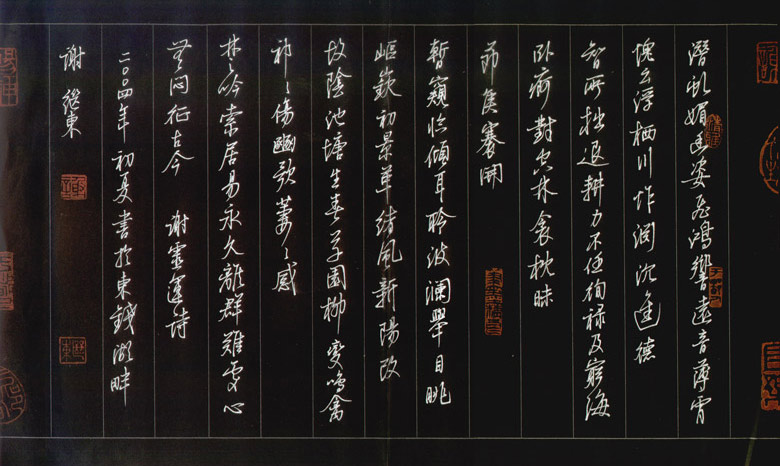 潛虬媚幽姿飛鴻響遠音薄霄
愧云浮栖川怍淵沉進德
智所拙退耕力不任徇祿及窮海
卧痾對空林衾枕昧
節候褰開
暫窺臨傾耳聆波瀾舉目眺
嶇嶔初景革緒風新陽改
故陰池塘生春草園柳變鳴禽
祁々傷豳歌萋々感
楚吟索居易永久離群難處心
無悶征古今 謝靈運詩
二〇〇四年初夏書於東錢湖畔
謝繼東